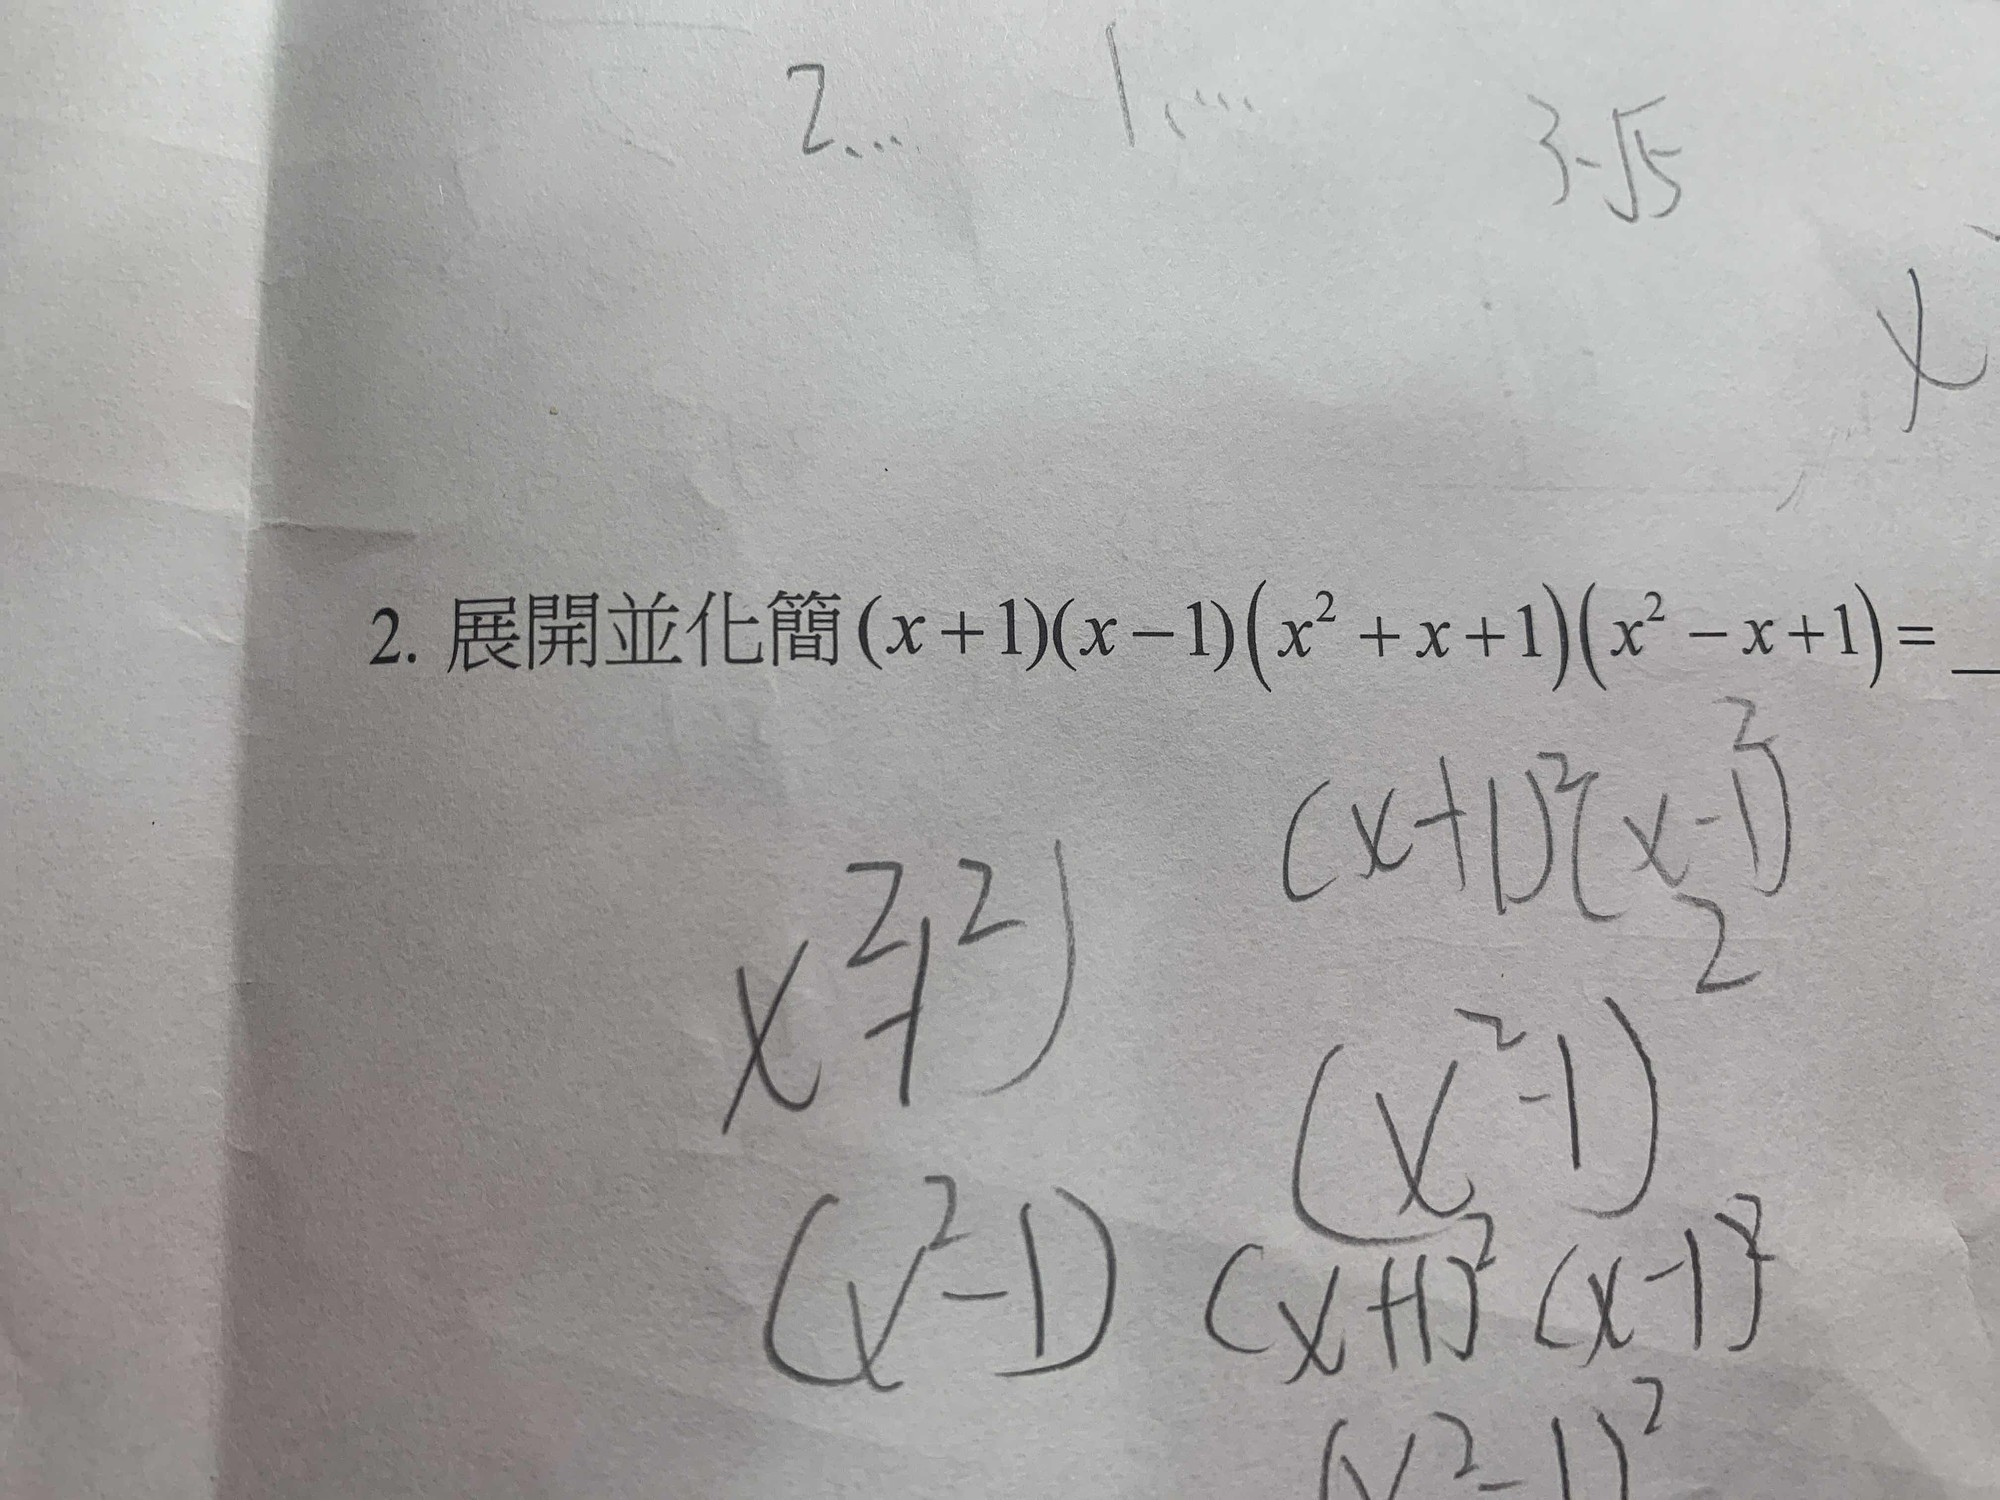 2... 1.... 3-√5
x
2. 展開並化簡(x+1)(x−1)(x²+x+1)(x²−x+1)=
(x+1)²(x-1)²
2
(x²-1)
(x²-1) (x+1)² (x-1)²
(x²-1)²